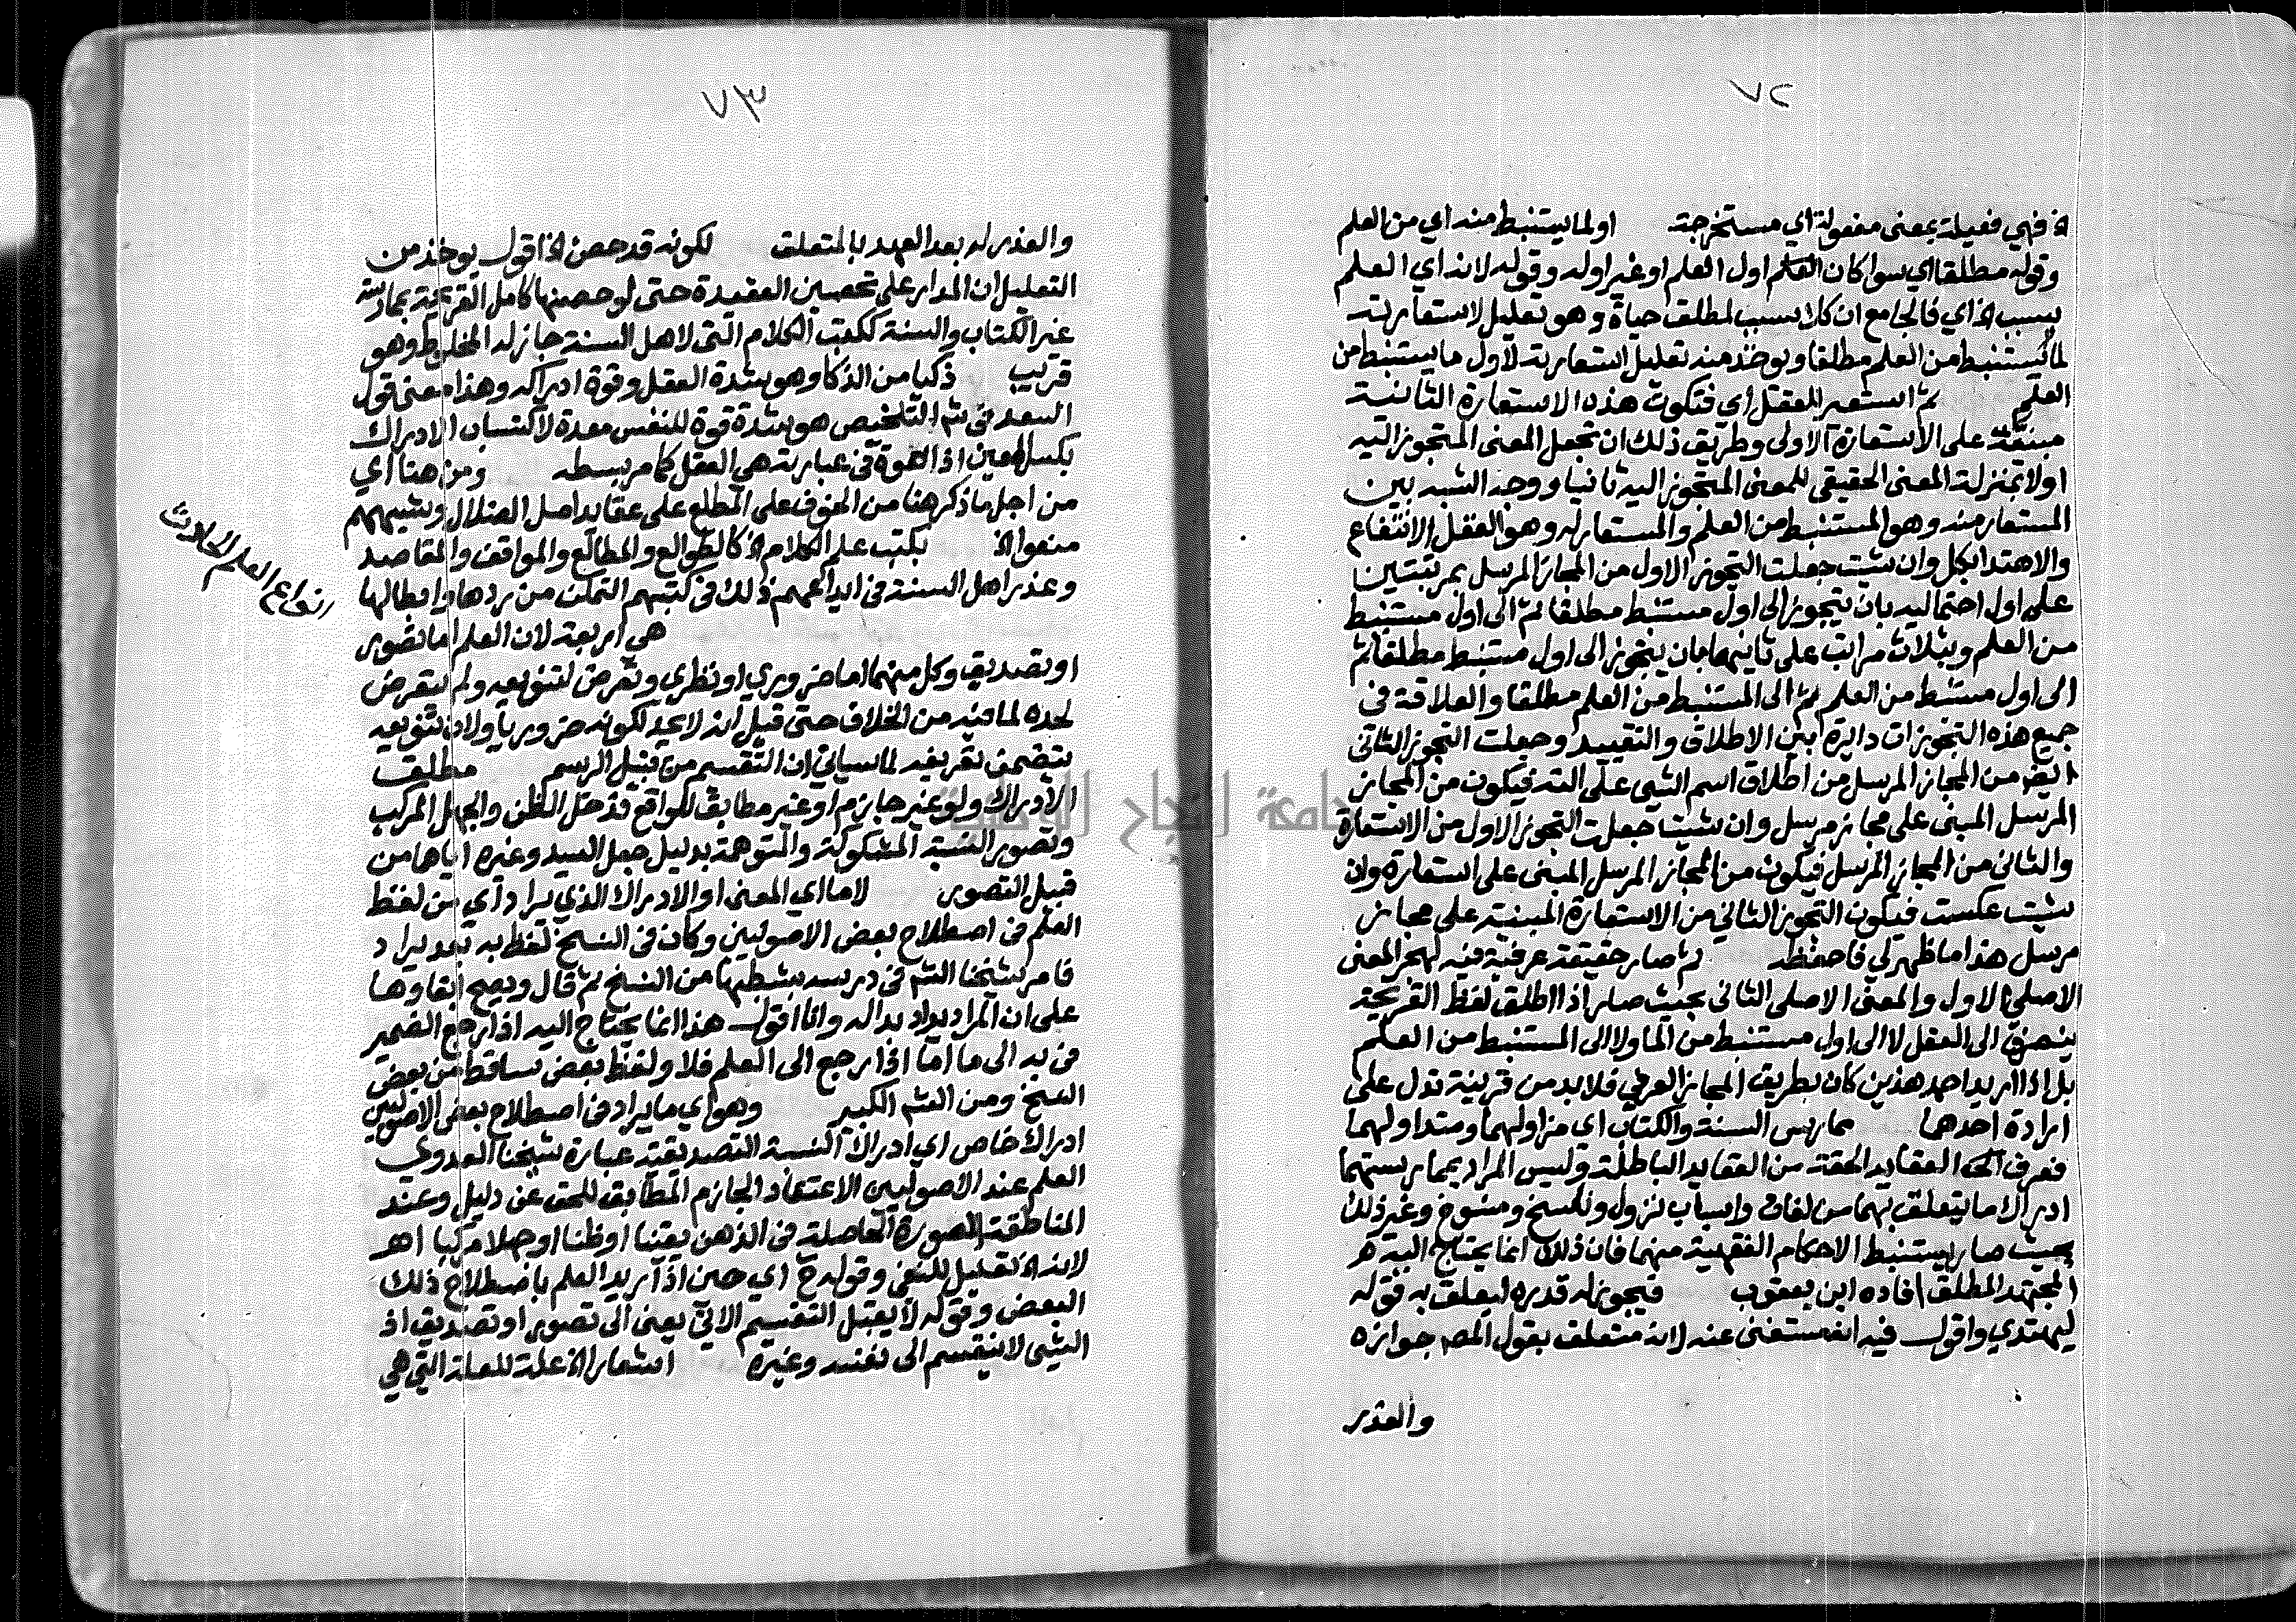 ٧٢
الخ فهي فعيلة بمعنى مفعولة اي مستخرجة او لما يستنبط منه اي من العلم
وقوله مطلقا اي سوا كان العلم اول العلم او غير اوله وقوله لانه اي العلم
بسبب الخ اي فالجامع ان كلا سبب لمطلق حياة وهو تعليل لاستعارته
لما يستنبط من العلم مطلقا ويوخذ منه تعليل استعارته لاول ما يستنبط من
العلم ثم استعير للعقل اي فتكون هذه الاستعارة الثانية
مبنية على الاستعارة الاولى وطريق ذلك ان تجعل المعنى المتجوز اليه
اولا بمنزلة المعنى الحقيقي للمعنى المتجوز اليه ثانيا ووجه الشبه بين
المستعار منه وهو المستنبط من العلم والمستعار له وهو العقل الانتفاع
والاهتدا بكل وان شيت جعلت التجوز الاول من المجاز المرسل بمرتبتين
على اول احتماليه بان يتجوز الى اول مستنبط مطلقا ثم الى اول مستنبط
من العلم وبثلاث مراتب على ثانيهما بان يتجوز الى اول مستنبط مطلقا ثم
الى اول مستنبط من العلم ثم الى المستنبط من العلم مطلقا والعلاقة في
جميع هذه التجوزات دايرة بين الاطلاق والتقييد وجعلت التجوز الثاني
ايضا من المجاز المرسل من اطلاق اسم الشي على الته فيكون من المجاز
المرسل المبني على مجاز مرسل وان شيت جعلت التجوز الاول من الاستعارة
والثاني من المجاز المرسل فيكون من المجاز المرسل المبني على استعارة وان
شيت عكست فيكون التجوز الثاني من الاستعارة المبنية على مجاز
مرسل هذا ما ظهر لي فاحفظه ثم صار حقيقة عرفية فيه لهجر المعنى
الاصلي الاول والمعنى الاصلي الثاني بحيث صار اذا اطلق لفظ القريحة
ينصرف الى العقل لا الى اول مستنبط من الما ولا الى المستنبط من العلم
بل اذا اريد احد هذين كان بطريق المجاز العرفي فلا بد من قرينة تدل على
ارادة احدهما مارس السنة والكتاب اي مزاولهما ومتداولهما
فعرف العقايد الحقة من العقايد الباطلة وليس المراد بممارستهما
ادراك ما يتعلق بهما من لغات واسباب نزول ونسخ ومنسوخ وغير ذلك
بحيث صار يستنبط الاحكام الفقهية منهما فان ذلك انما يحتاج اليه
المجتهد المطلق افاده ابن يعقوب فيجوز له قدره ليعلق به قوله
ليهتدي واقول فيه انه مستغنى عنه لانه متعلق بقول المص جوازه
والعذر
٧٣
والعذر له بعد العهد بالمتعلق لكونه قد حصن الخ اقول يوخذ من
التعليل ان المدار على تحصين العقيدة حتى لو حصنها كامل القريحة بممارسة
غير الكتاب والسنة ككتب الكلام التي لاهل السنة جاز له المخلوط وهو
قريب ذكيا من الذكا وهو شدة العقل وقوة ادراكه وهذا معنى قول
السعد في شرح التلخيص هو شدة قوة للنفس معدة لاكتساب الادراك
بكسر العين اذ القوة في عبارته هي العقل كما مر بسطه ومن هنا اي
من اجل ما ذكر هنا من الخوف على المطلع على عقايد اهل الضلال وشبههم
منعوا الخ بكتب علم الكلام الخ كالطوالع والمطالع والمواقف والمقاصد
وعذر اهل السنة في ايداعهم ذلك في كتبهم التمكن من ردها وابطالها
انواع العلم الحادث
هي اربعة لان العلم اما تصور
او تصديق وكل منهما اما ضروري او نظري وتعرض لتنويعه ولم يتعرض
لحده لما فيه من الخلاف حتى قيل انه لا يحد لكونه ضروريا ولان تنويعه
يتضمن تعريفه لما سياتي ان التقسيم من قبيل الرسم مطلق
الادراك ولو غير جازم او غير مطابق للواقع فدخل الظن والجهل المركب
وتصور النسبة المشكوكة والمتوهمة بدليل جعل السيد وغيره اياها من
قبيل التصور لا ما اي المعنى او الادراك الذي يراد اي من لفظ
العلم في اصطلاح بعض الاصوليين وكان في النسخ لفظ به بعد يراد
فامر شيخنا الش في درسه بشطبها من النسخ ثم قال ويصح ابقاوها
على ان المراد يراد بداله وانا اقول هذا انما يحتاج اليه اذا رجع الضمير
في به الى ما اما اذا رجع الى العلم فلا ولفظ بعض ساقط من بعض
النسخ ومن الش الكبير وهو اي ما يراد في اصطلاح بعض الاصوليين
ادراك خاص اي ادراك النسبة التصديقية عبارة شيخنا العدوي
العلم عند الاصوليين الاعتقاد الجازم المطابق للحق عن دليل وعند
المناطقة الصورة الحاصلة في الذهن يقينا او ظنا او جهلا مركبا اهـ
لانه الخ تعليل للنفي وقوله ح اي حين اذ اريد العلم باصطلاح ذلك
البعض وقوله لا يقبل التقسيم الاتي يعني الى تصور او تصديق اذ
الشي لا ينقسم الى نفسه وغيره اشعار الخ علة للعلة التي هي
جامعة النجاح الوطنية